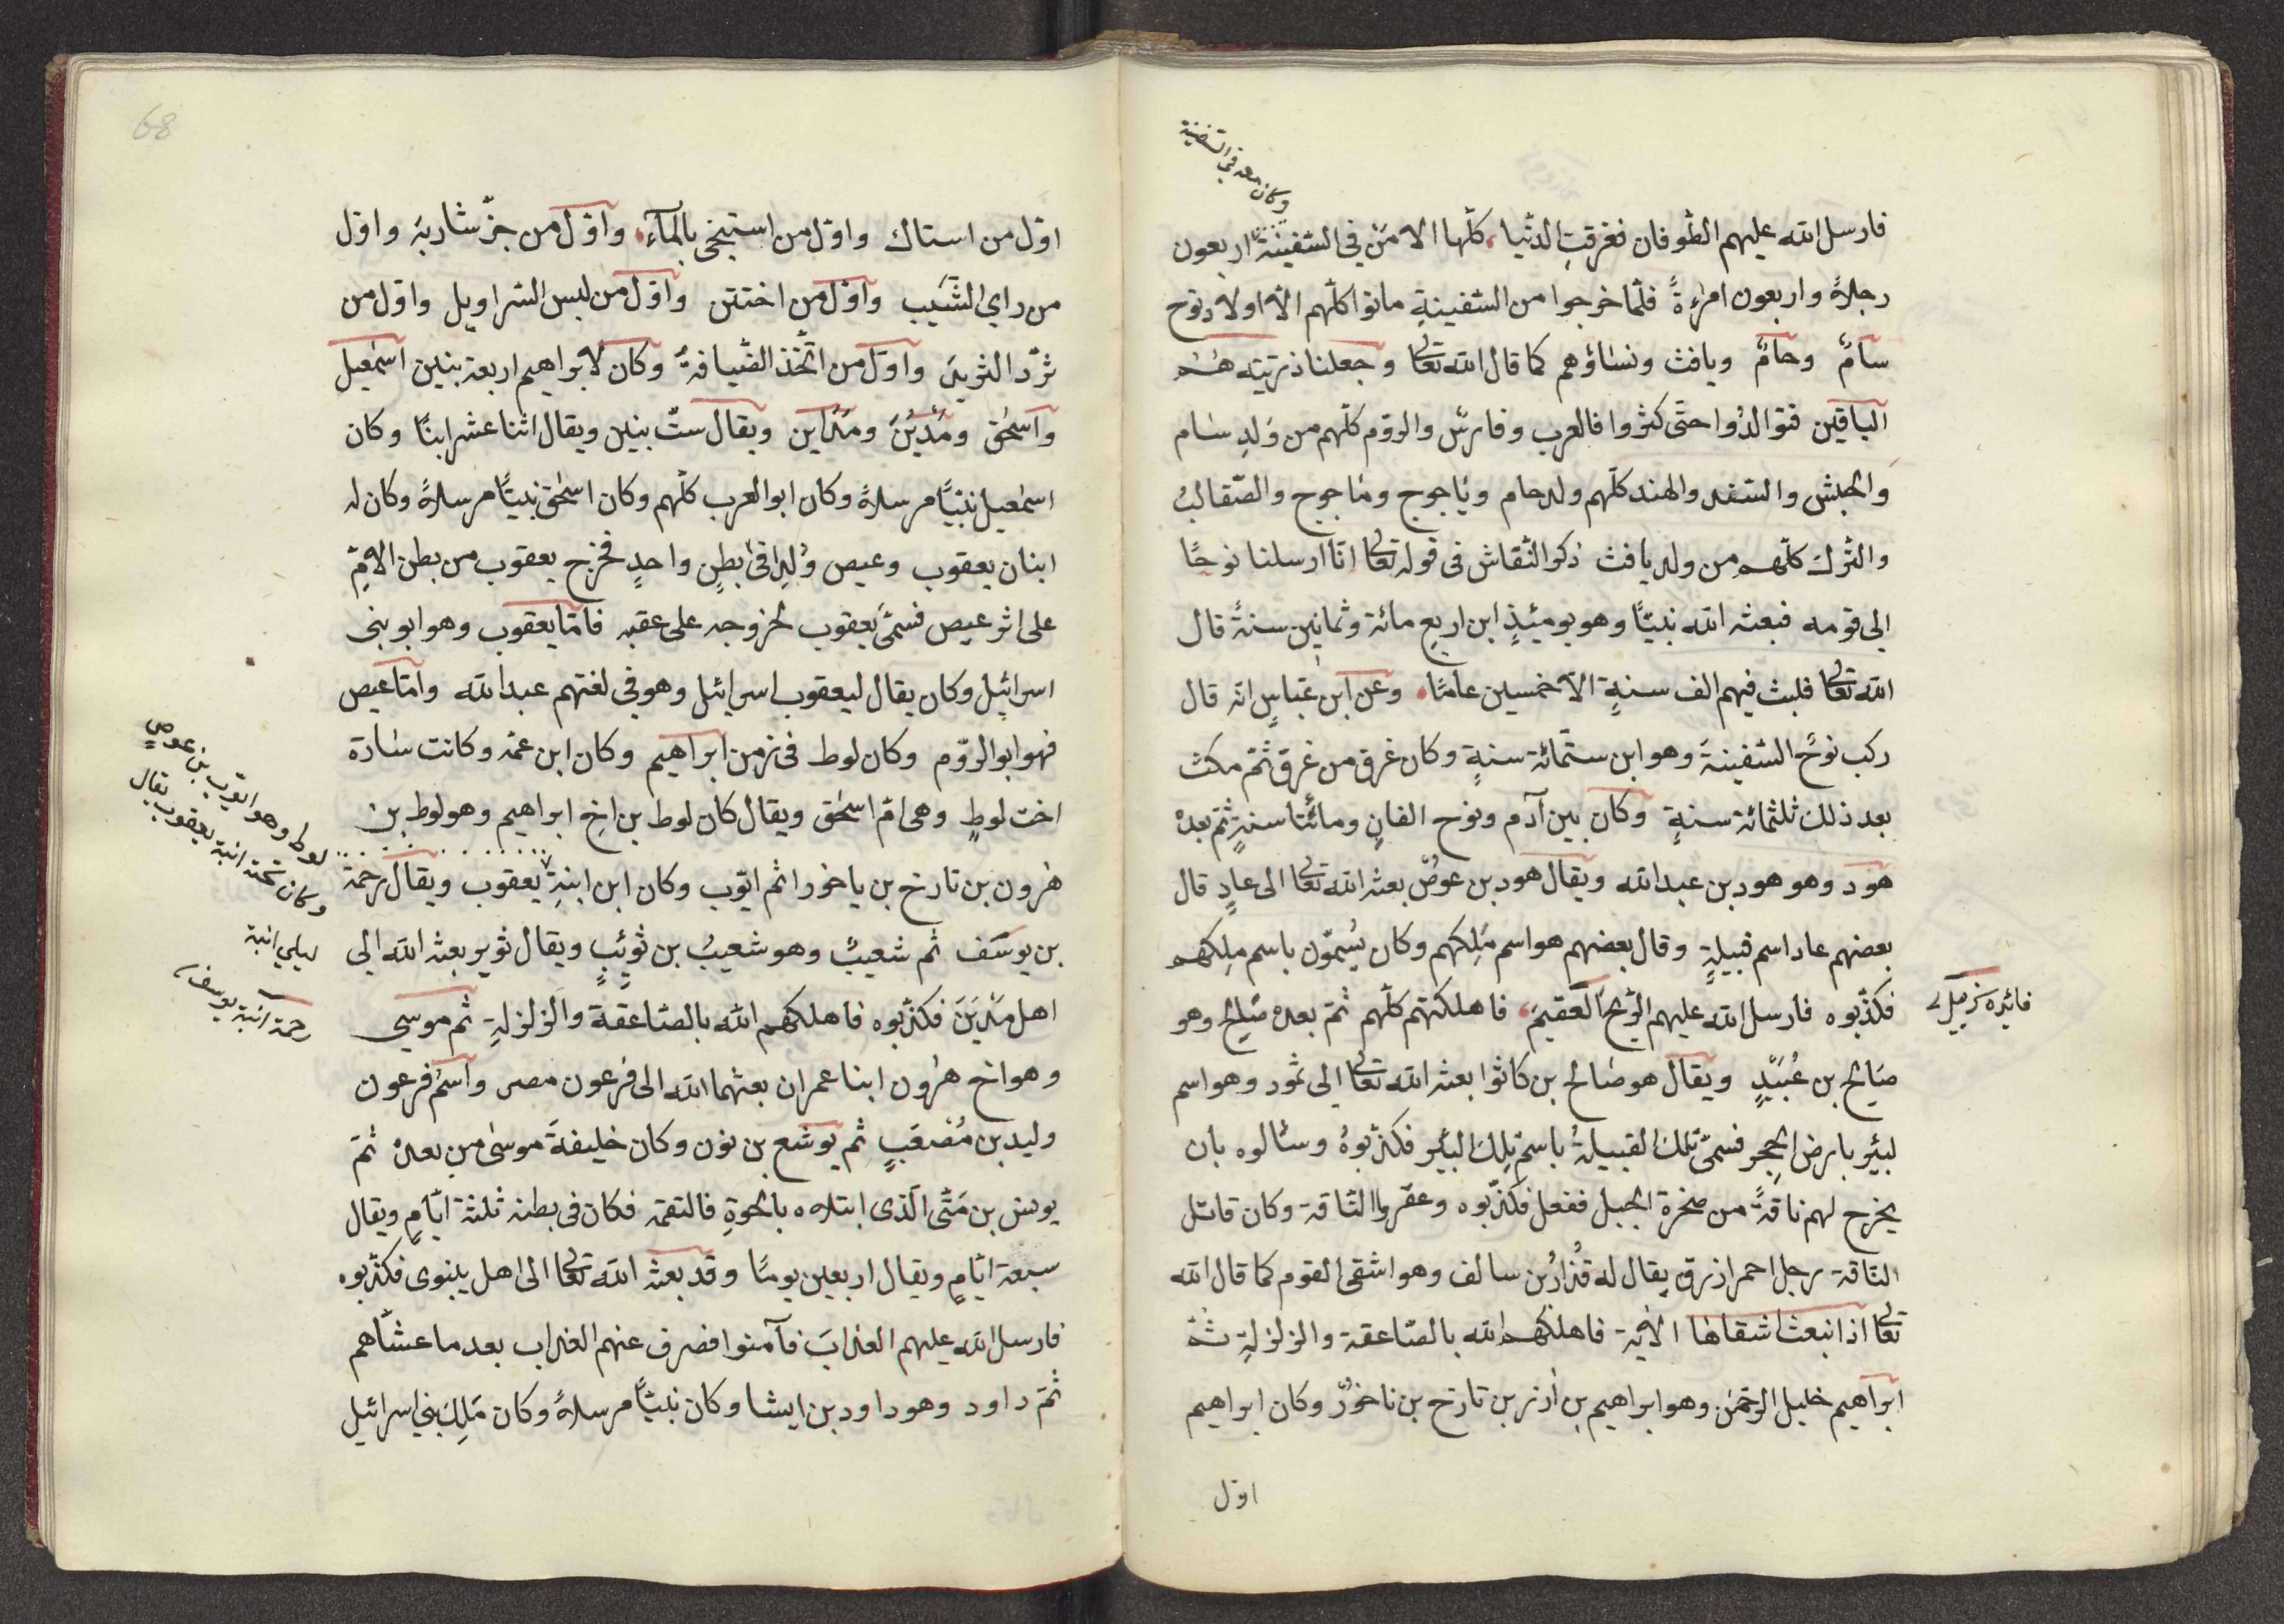 وكان معه في السفينة
فارسل الله عليهم الطّوفان فغرقت الدنيا كلّها الا مَن في السّفينة اربعون
رجلاً واربعون امرءةً فلمّا خرجوا من السّفينةِ ماتوا كلّهم الّا اولاد نوح
سامٌ وحامٌ ويافث ونساؤهم كما قال الله تعالى وجعلنا ذريّته هم
الباقين فتوالدُوا حتّى كثروا فالعرب وفارسُ والرّوم كلّهم من وَلدِ سام
والحبش والسّند والهند كلّهم ولد حام وياجوج وماجوج والصّقالبُ
والتّرك كلّهم من ولد يافث ذكر النّقاش في قوله تعالى انّا ارسلنا نوحًا
الي قومه فبعثه الله نبيًّا وهو يومئذٍ ابن اربعِ مائة وثمانين سنةً قال
الله تعالى فلبث فيهم الف سنةٍ الّا خمسين عامًا وعن ابن عبّاسٍ انّه قال
ركب نوحٌ السّفينةَ وهو ابن ستّمائة سنةٍ وكان غرق من غرق ثمّ مكث
بعد ذلك ثلثمائة سنةٍ وكان بين آدم ونوح الفانِ ومائتا سنةٍ ثمّ بعدهُ
هود وهو هود بن عبد الله ويقال هود بن عوصٌ بعثه الله تعالى الى عادٍ قال
بعضهم عاد اسم قبيلةٍ وقال بعضهم هو اسم مَلِكهم وكان يُسمّون باسم ملِكهم
فكذّبوه فارسل الله عليهم الرّيحَ العَقيمَ فاهلكتهم كلّهم ثمّ بعده صَالح وهو
صَالح بن عُبَيدٍ ويقال هو صالح بن كاثوا بعثه الله تعالى الي ثمود وهو اسم
لبئرٍ بارض الحِجرِ فسمّى تلك القبيلةُ باسم تِلك البئرِ فكذّبوهُ وسئالوه بان
يخرج لهم ناقةً من صخرة الجبل ففعل فكذّبوه وعقروا النّاقة وكان قاتل
النّاقة رجل احمر ازرق يقال له قُذارُ بن سالف وهو اشقى القوم كما قال الله
تعالى اذ انبعث اشقاها الآية فاهلكهم الله بالصّاعقة والزلزلةِ ثمّ
ابراهيم خليل الرّحمٰن وهو ابراهيم بن آزر بن تارخ بن ناخورٌ وكان ابراهيم
اوّل
اوّل من استاك واوّل من استنجى بالمآء واوّل من جزّ شاربَه واوّل
من راي الشَيب واوّل من اختتن واوّل من لبس السّراويل واوّل من
ثرّد الثريدَ واوّل من اتّخذ الضّيافةَ وكان لابراهيم اربعة بنين اسمٰعيل
واسحٰق ومَدْيَنَ ومَدَاين ويقال ستّ بنين ويقال اثنا عشر ابنًا وكان
اسمٰعيل نبيًّا مرسلاً وكان ابو العرب كلّهم وكان اسحٰق نبيًّا مرسلاً وكان له
ابنان يعقوب وعيص وُلِدا في بطنٍ واحدٍ فخرج يعقوب من بطن الامّ
على اثر عيص فسمّى يعقوب لخروجه على عقبه فامّا يعقوب وهو ابو بني
اسرائيل وكان يقال ليعقوب اسرائيل وهو في لغتهم عبد الله وامّا عيص
فهو ابو الرّوم وكان لوط في زمن ابراهيم وكان ابن عمّه وكانت سارة
اخت لوطٍ وهى امّ اسحٰق ويقال كان لوط بن اخِ ابراهيم وهو لوط بن
هٰرون بن تارخ بن ياخور ا ثم ايّوب وكان ابن ابنةِ يعقوب ويقال رحمة
بن يوسف ثم شعيبٌ وهو شعيبُ بن ثوئيبٍ ويقال ثوير بعثه الله الي
اهل مَدْيَنَ فكذّبوه فاهلكهم الله بالصّاعقة والزلزلةِ ثم موسى
وهو اخ هٰرون ابنا عمران بعثهما الله الى فرعون مصر واسم فرعون
وليد بن مُصْعَبٍ ثم يوشع بن نون وكان خليفةَ موسى من بعده ثمّ
يونس بن مَتّى الّذى ابتلاه بالحوةِ فالتقمه فكان في بطنه ثلثة ايّامٍ ويقال
سبعة ايّامٍ ويقال اربعين يومًا وقد بعثه الله تعالى الى اهل نينوى فكذّبوه
فارسل الله عليهم العذابَ فآمنوا فصرف عنهم العذاب بعد ما عشّاهم
ثمّ داود وهو داود بن ايشا وكان نبيًّا مرسلاً وكان مَلِكَ بني اسرائيل
وهو ايّوب بن عوص
وكان تحته ابنة يعقوب يقال
ليلي ابنة
رحمة ابنة يوسف
68